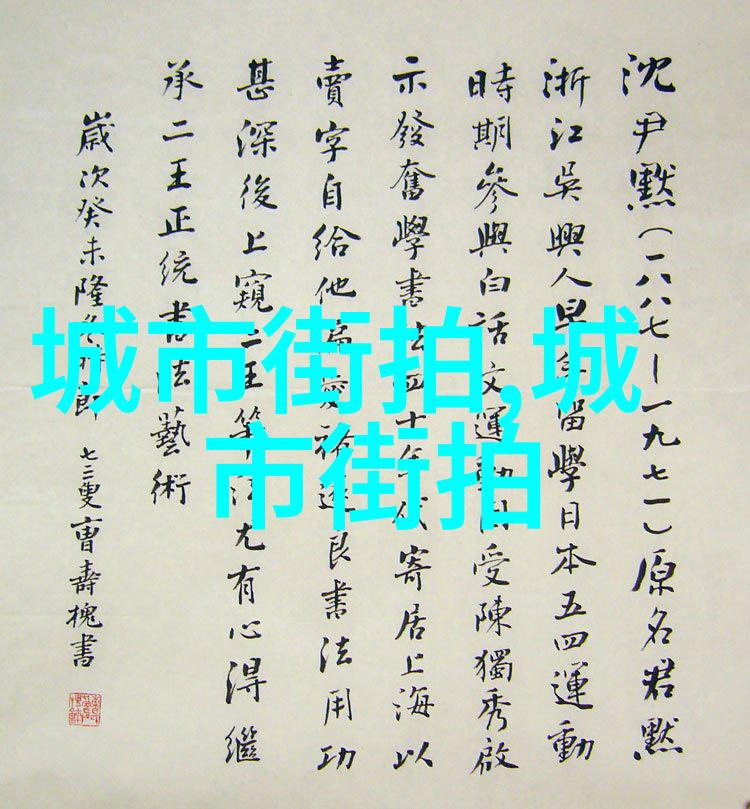 沈尹默(一八八七—一九七一)原名君默
浙江吳興人早年留學日本五四運動
時期參與白話文運動因受陳獨秀啟
示發奮學書法四十年代寄居上海以
賣字自給他偏愛褚遂良書法用功
甚深後上窺二王筆法尤有心得繼
承二王正統書法藝術
歲次癸未隆冬郎七三叟曹壽槐書
城市街拍,城
市街拍